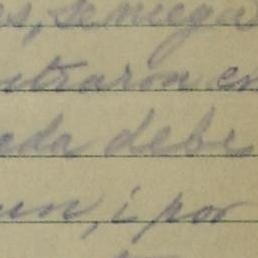 es, se niega
traron en
eda debe
un, i por